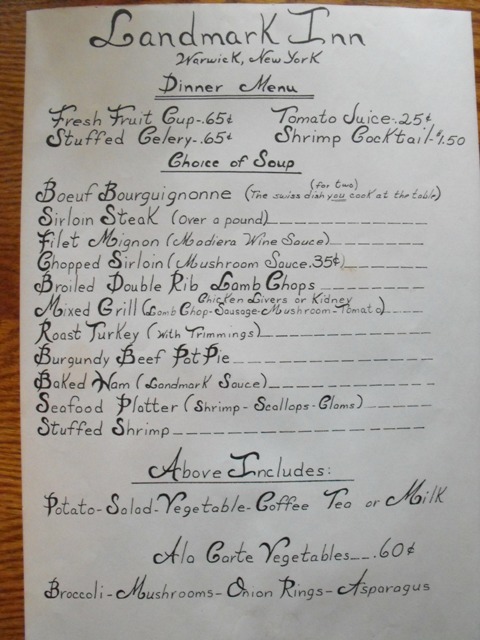 Landmark Inn
Warwick, New York
Dinner Menu
Fresh Fruit Cup-.65¢ Tomato Juice-.25¢
Stuffed Celery-.65¢ Shrimp Cocktail-$1.50
Choice of Soup
Boeuf Bourguignonne (for two) (The swiss dish you cook at the table)
Sirloin Steak (over a pound)
Filet Mignon (Madiera Wine Sauce)
Chopped Sirloin (Mushroom Sauce .35¢)
Broiled Double Rib Lamb Chops
Chicken Livers or Kidney
Mixed Grill (Lamb Chop-Sausage-Mushroom-Tomato)
Roast Turkey (with Trimmings)
Burgundy Beef Pot Pie
Baked Ham (Landmark Sauce)
Seafood Platter (Shrimp-Scallops-Clams)
Stuffed Shrimp
Above Includes:
Potato-Salad-Vegetable-Coffee Tea or Milk
Ala Carte Vegetables---.60¢
Broccoli-Mushrooms-Onion Rings-Asparagus